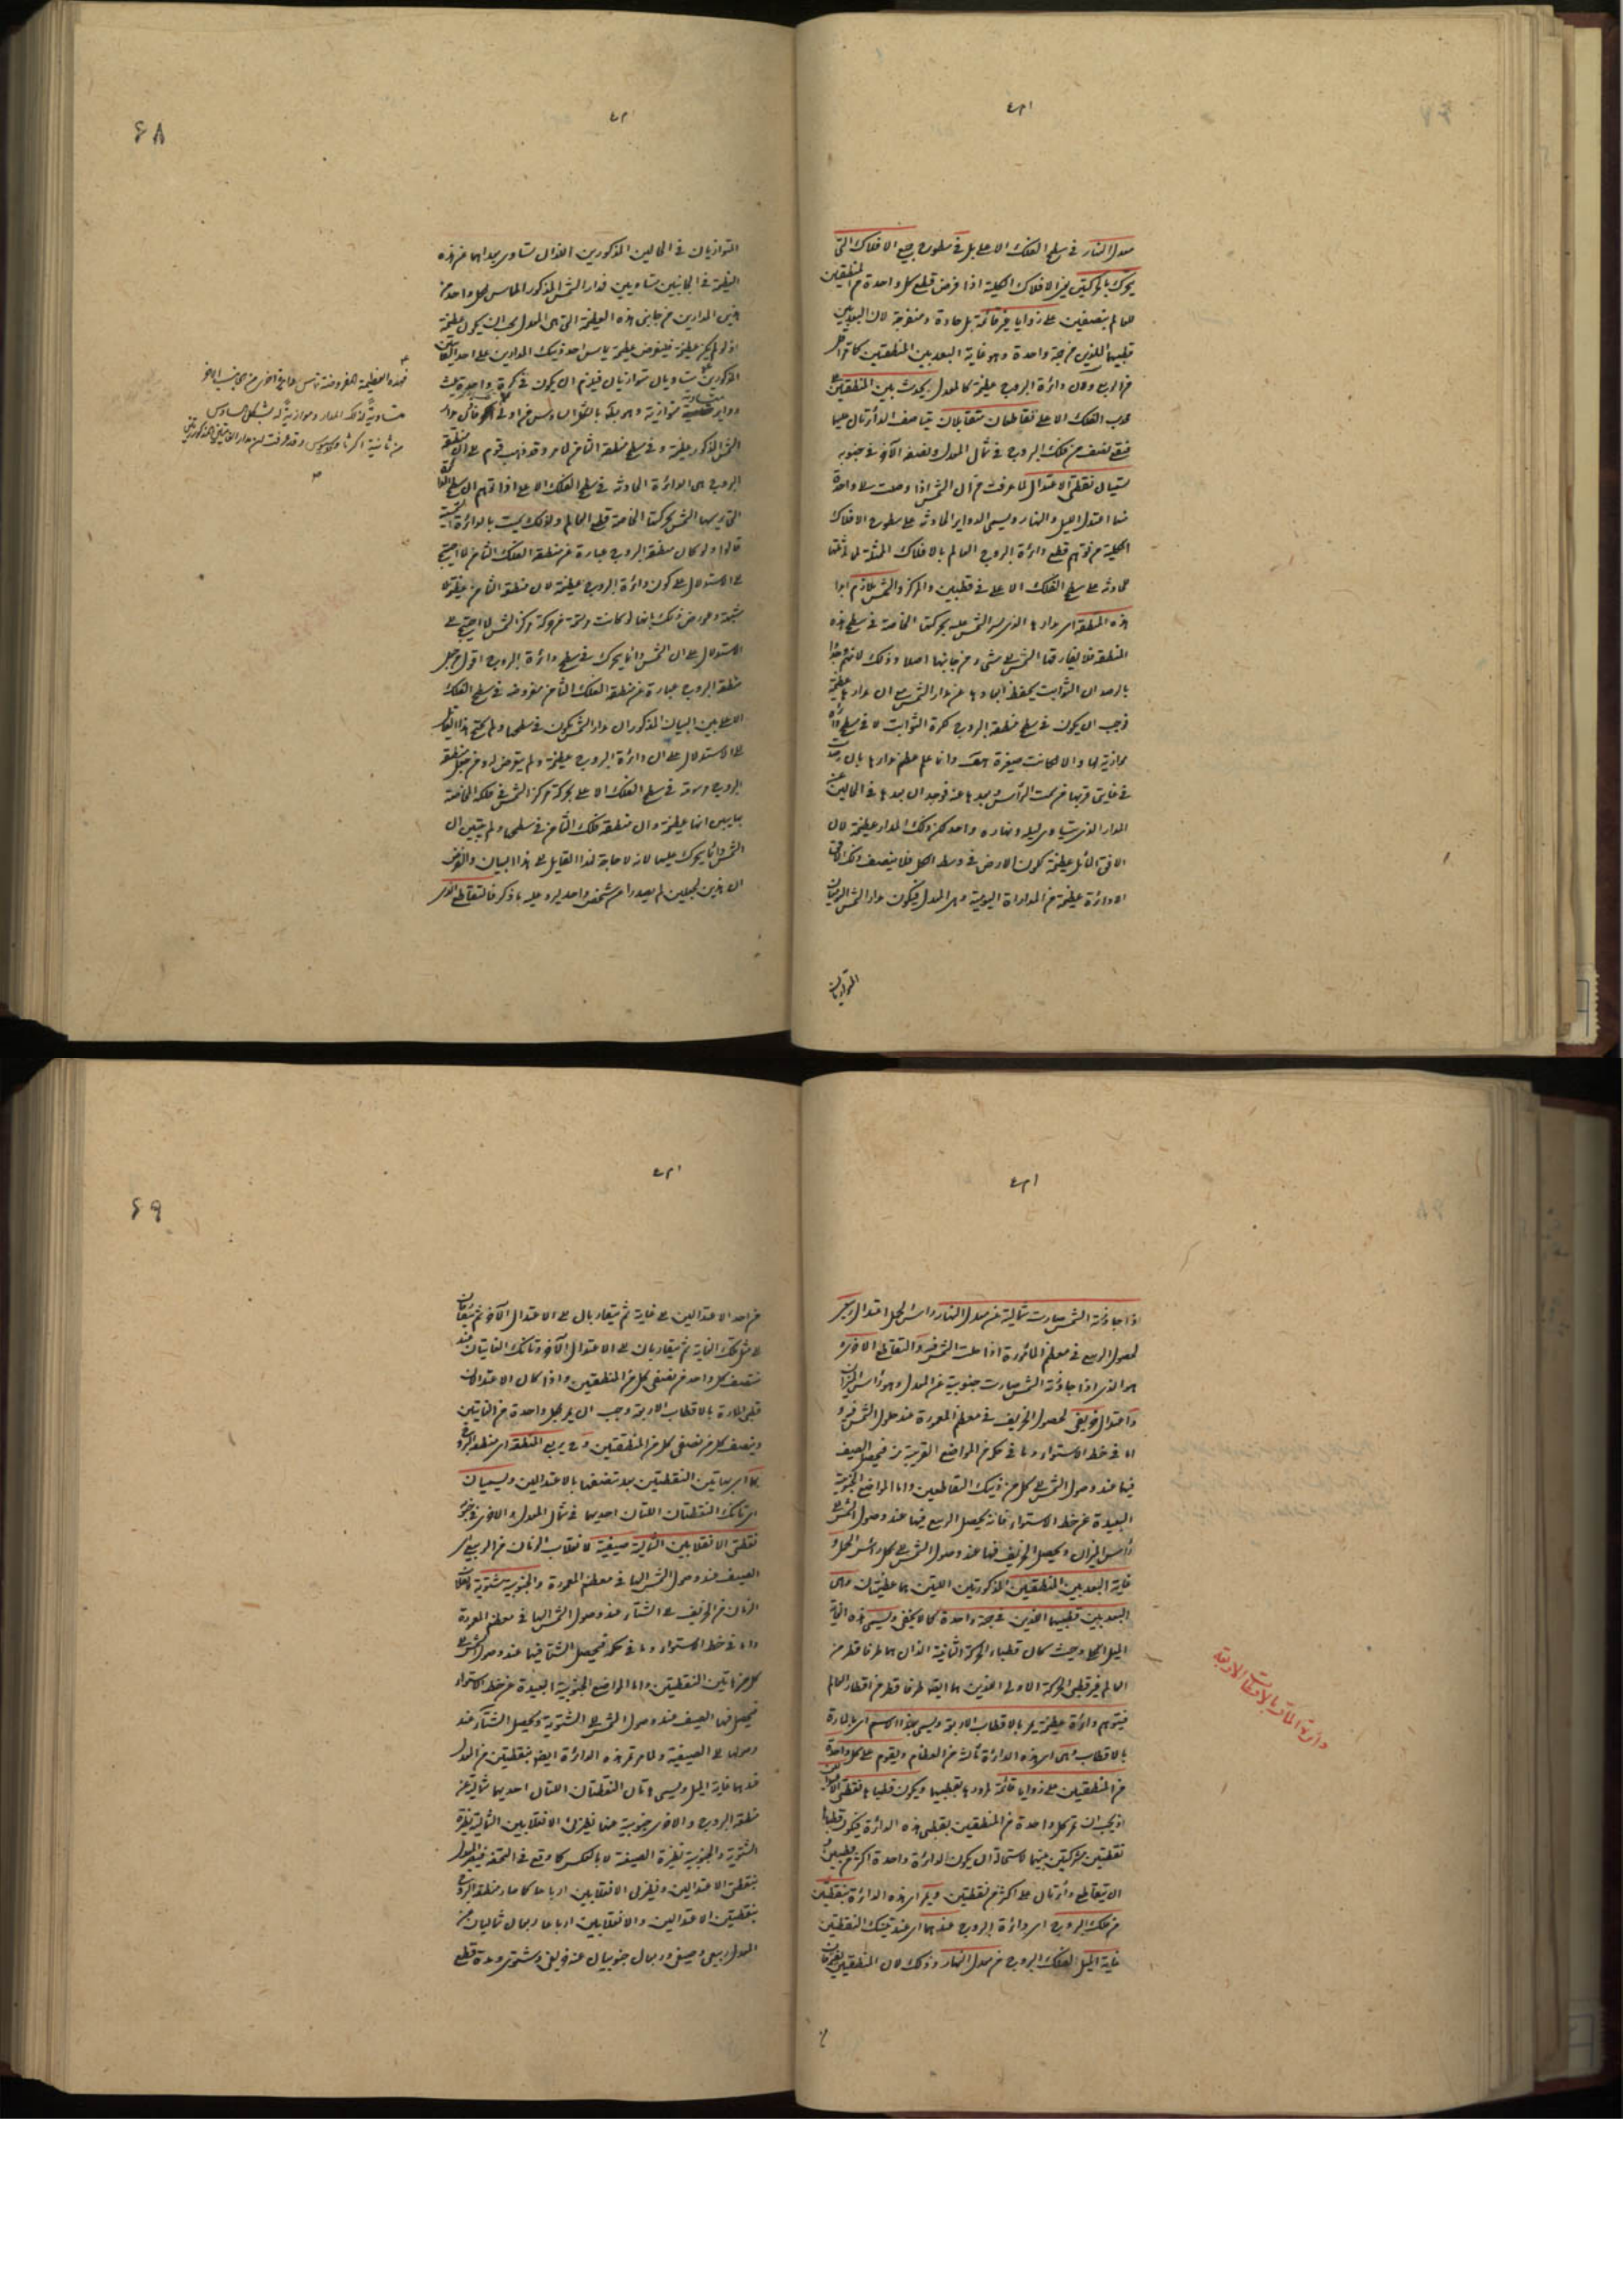 معدل النهار في سطح الفلك الاعلى بل في سطوح جميع الافلاك التي
يتحرك بالحركتين الافلاك الكلية اذا فرض قطع كل واحدة من المنطقتين
للعالم بنصفين على زوايا غير قائمة بل حادة ومنفرجة لان البعد بين
قطبيهما اللذين في جهة واحدة وهو غاية البعد بين المنطقتين كما
ولان دائرة البروج عظيمة كالمعدل يحدث بين المنطقتين على
محدب الفلك الاعلى تقاطعان متقابلان يتناصف الدائرتان عليهما
فيقع نصف من فلك البروج في شمال المعدل ونصفه الآخر في جنوبه
يسميان نقطتي الاعتدال لما عرفت من ان الشمس اذا وصلت الى واحدة
منهما اعتدل الليل والنهار ويسمى الدواير الحادثة على سطوح الافلاك
الكلية من توهم قطع دائرة البروج العالم بالافلاك الممثلة لمماثلتها
محاذية على سطح الفلك الاعلى في قطبين والمركز والشمس تلازم ابدا
هذه المنطقة اى مدارها الذى يسير الشمس عليه بحركته الخاصة في سطح هذه
المنطقة فلا يفارقها الشمس الى شىء من جانبيها اصلا وذلك لانهم وجدوا
بالرصد ان الثوابت يحفظ ابعادها عن مدار الشمس مع ان مدارها عظيمة
فوجب ان يكون في سطح منطقة البروج لكرة الثوابت لا في سطح دائرة
موازية لها والا لكانت صغيرة هف وانما علم عظم مدارها بان رصدت
في غايتى قربها من سمت الرأس وبعدها عنه فوجد ان بعدها في الحالين عن
المدار الذى يتساوى ليله ونهاره واحد لكن ذلك المدار عظيمة لان
الافق المائل عظيمة لكون الارض في وسط الكل فلا ينصف ذلك الافق
الا دائرة عظيمة من المدارات اليومية وهى المعدل فيكون مدار الشمس اليوميان
المتوازيان
٤٨
المتوازيان في الحالين المذكورين اللذان تساوى بعداهما عن هذه
العظيمة في الجانبين متساويين فمدار الشمس المذكور المماس لكل واحد من
هذين المدارين من جانبى هذه العظيمة التى هى المعدل يجب ان يكون عظيمة
اذ لو لم يكن عظيمة فليفرض عظيمة يماس احد ذينك المدارين على احد التماسين
المذكورين متساويان متوازيان فيلزم ان يكون في كرة واحدة ثلث
دواير متساوية متوازية وهو بط بالشكل السادس من اولى اكر فاذن مدار
الشمس المذكور عظيمة وفي سطح منطقة الثامن لما مر وقد ذهب قوم الى ان منطقة
البروج هى الدائرة الحادثة في سطح الفلك الاعلى اذا توهم ان سطح الدائرة
التى يرسمها الشمس بحركتها الخاصة قطع العالم ولذلك سميت بالدائرة الشمسية
قالوا ولو كان منطقة البروج عبارة عن منطقة الفلك الثامن لما احتيج
الى الاستدلال على كون دائرة البروج عظيمة لان منطقة الثامن عظيمة لا
شبهة وعورض ذلك بانها لو كانت مرتسمة من حركة مركز الشمس لما احتيج الى
الاستدلال على ان الشمس دائما يتحرك في سطح دائرة البروج اقول من جعل
منطقة البروج عبارة عن منطقة الفلك الثامن مفروضة في سطح الفلك
الاعلى بين البيان المذكور ان مدار الشمس يكون في سطحها ولم يحتج هذا القائل
الى الاستدلال على ان دائرة البروج عظيمة ولم يتعرض له ومن جعل منطقة
البروج مرسومة في سطح الفلك الاعلى بحركة مركز الشمس في فلكه الخاصة
بها بين انها عظيمة وان منطقة فلك الثامن في سطحها ولم يتبين ان
الشمس دائما يتحرك عليها لانه لا حاجة لهذا القايل الى هذا البيان والغرض
ان هذين الجعلين لم يصدرا من شخص واحد ليرد عليه ما ذكر فالتقاطع الذى
فهذه العظيمة المفروضة تماس مدارا اخرى من الجانب الآخر
متساوية لذلك المدار وموازية له بشكل السادس
من ثانية اكر ثاوذوسيوس وقد عرفت ان مدارا المذكورين
صح
اذا جاوزته الشمس صارت شمالية عن معدل النهار راس الحمل اعتدال ربيعى
لحصول الربيع في معظم المعمورة اذا حلت الشمس فيه والتقاطع الاخر
هو الذى اذا جاوزته الشمس صارت جنوبية عن المعدل وهو راس الميزان
واعتدال خريفى لحصول الخريف في معظم المعمورة عند حلول الشمس فيه و
اما في خط الاستواء وما في حكمه من المواضع القريبة منه فيحصل الصيف
فيها عند وصول الشمس الى كل من ذينك التقاطعين واما المواضع الجنوبية
البعيدة عن خط الاستواء فانه يحصل الربيع فيها عند وصول الشمس الى
راس الميزان ويحصل الخريف فيها عند وصول الشمس الى راس الحمل و
غاية البعد بين المنطقتين المذكورتين اللتين هما عظيمتان وهى
البعد بين قطبيهما اللذين في جهة واحدة كما لا يخفى ويسمى هذه الغاية
الميل الكلى وحيث كان قطبا الحركة الثانية اللذان هما طرفا قطر من
العالم غير قطبى الحركة الاولى اللذين هما ايضا طرفا قطر من اقطار العالم
فيتوهم دائرة عظيمة يمر بالاقطاب الاربعة ويسمى بهذا الاسم اى المارة
بالاقطاب وهى اى هذه الدائرة ثالثة من العظام ويقوم على كل واحدة
من المنطقتين على زوايا قائمة لمرورها بقطبيهما ويكون قطباها نقطتى الاعتدالين
اذ يجب ان تمر كل واحدة من المنطقتين بقطبى هذه الدائرة فيكون قطباها
نقطتين مشتركتين بينهما لاستحالة ان يكون لدائرة واحدة اكثر من قطبين
ان يتقاطع دائرتان على اكثر من نقطتين ويمر اى هذه الدائرة بنقطتين
من فلك البروج اى دائرة البروج عندهما اى عند تينك النقطتين
غاية الميل لفلك البروج من معدل النهار وذلك لان المنطقتين يتفرقان
دائرة المارة بالاقطاب الاربعة
٤٩
من احد الاعتدالين الى غاية ثم يتقاربان الى الاعتدال الآخر ثم يتفرقان
الى مثل تلك الغاية ثم يتقاربان الى الاعتدال الآخر وتانك الغايتان عند
منتصف كل واحد من نصفى كل من المنطقتين واذا كان الاعتدالان
قطبى المارة بالاقطاب الاربعة وجب ان يمر بكل واحدة من الغايتين
وينصف كل من نصفى كل من المنطقتين وح يربع المنطقة اى منطقة البروج
بها اى بهاتين النقطتين بعد تنصيفها بالاعتدالين ويسميان
اى تانك النقطتان اللتان احديهما في شمال المعدل والاخرى في جنوبه
نقطتى الانقلابين الشمالية صيفية لانقلاب الزمان من الربيع الى
الصيف عند وصول الشمس اليها في معظم المعمورة والجنوبية شتوية لانقلاب
الزمان من الخريف الى الشتاء عند وصول الشمس اليها في معظم المعمورة
واما في خط الاستواء وما في حكمه فيحصل الشتاء فيها عند وصول الشمس الى
كل من هاتين النقطتين واما المواضع الجنوبية البعيدة عن خط الاستواء
فيحصل فيها الصيف عند وصول الشمس الى الشتوية ويحصل الشتاء عند
وصولها الى الصيفية ولما مر تمر هذه الدائرة ايضا بنقطتين من المعدل
عندهما غاية الميل ويسمى هاتان النقطتان اللتان احديهما شمالية عن
منطقة البروج والاخرى جنوبية عنها نظيرتى الانقلابين الشمالية نظيرة
الشتوية والجنوبية نظيرة الصيفية لا بالعكس كما وقع في التحفة فيصير المعدل
بنقطتى الاعتدالين ونظيرتى الانقلابين ارباعا كما صار منطقة البروج
بنقطتين الاعتدالين والانقلابين ارباعا ربعان شماليان من
المعدل ربيعى وصيفى وربعان جنوبيان عنه خريفى وشتوى ومدة قطع